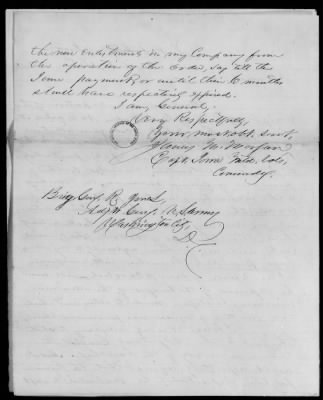 the new enlistments in my Company from
the operation of the order, say till the
same payments or until their 6 months
shall have respectively expired.
I am, General,
Very Respectfully,
Your most obt. Servt.
Henry M.
Capt. Vols.
Comndg.
Brig. Genl. R. Jones,
Adjt. Genl. U. S. Army
Washington City,
D. C.